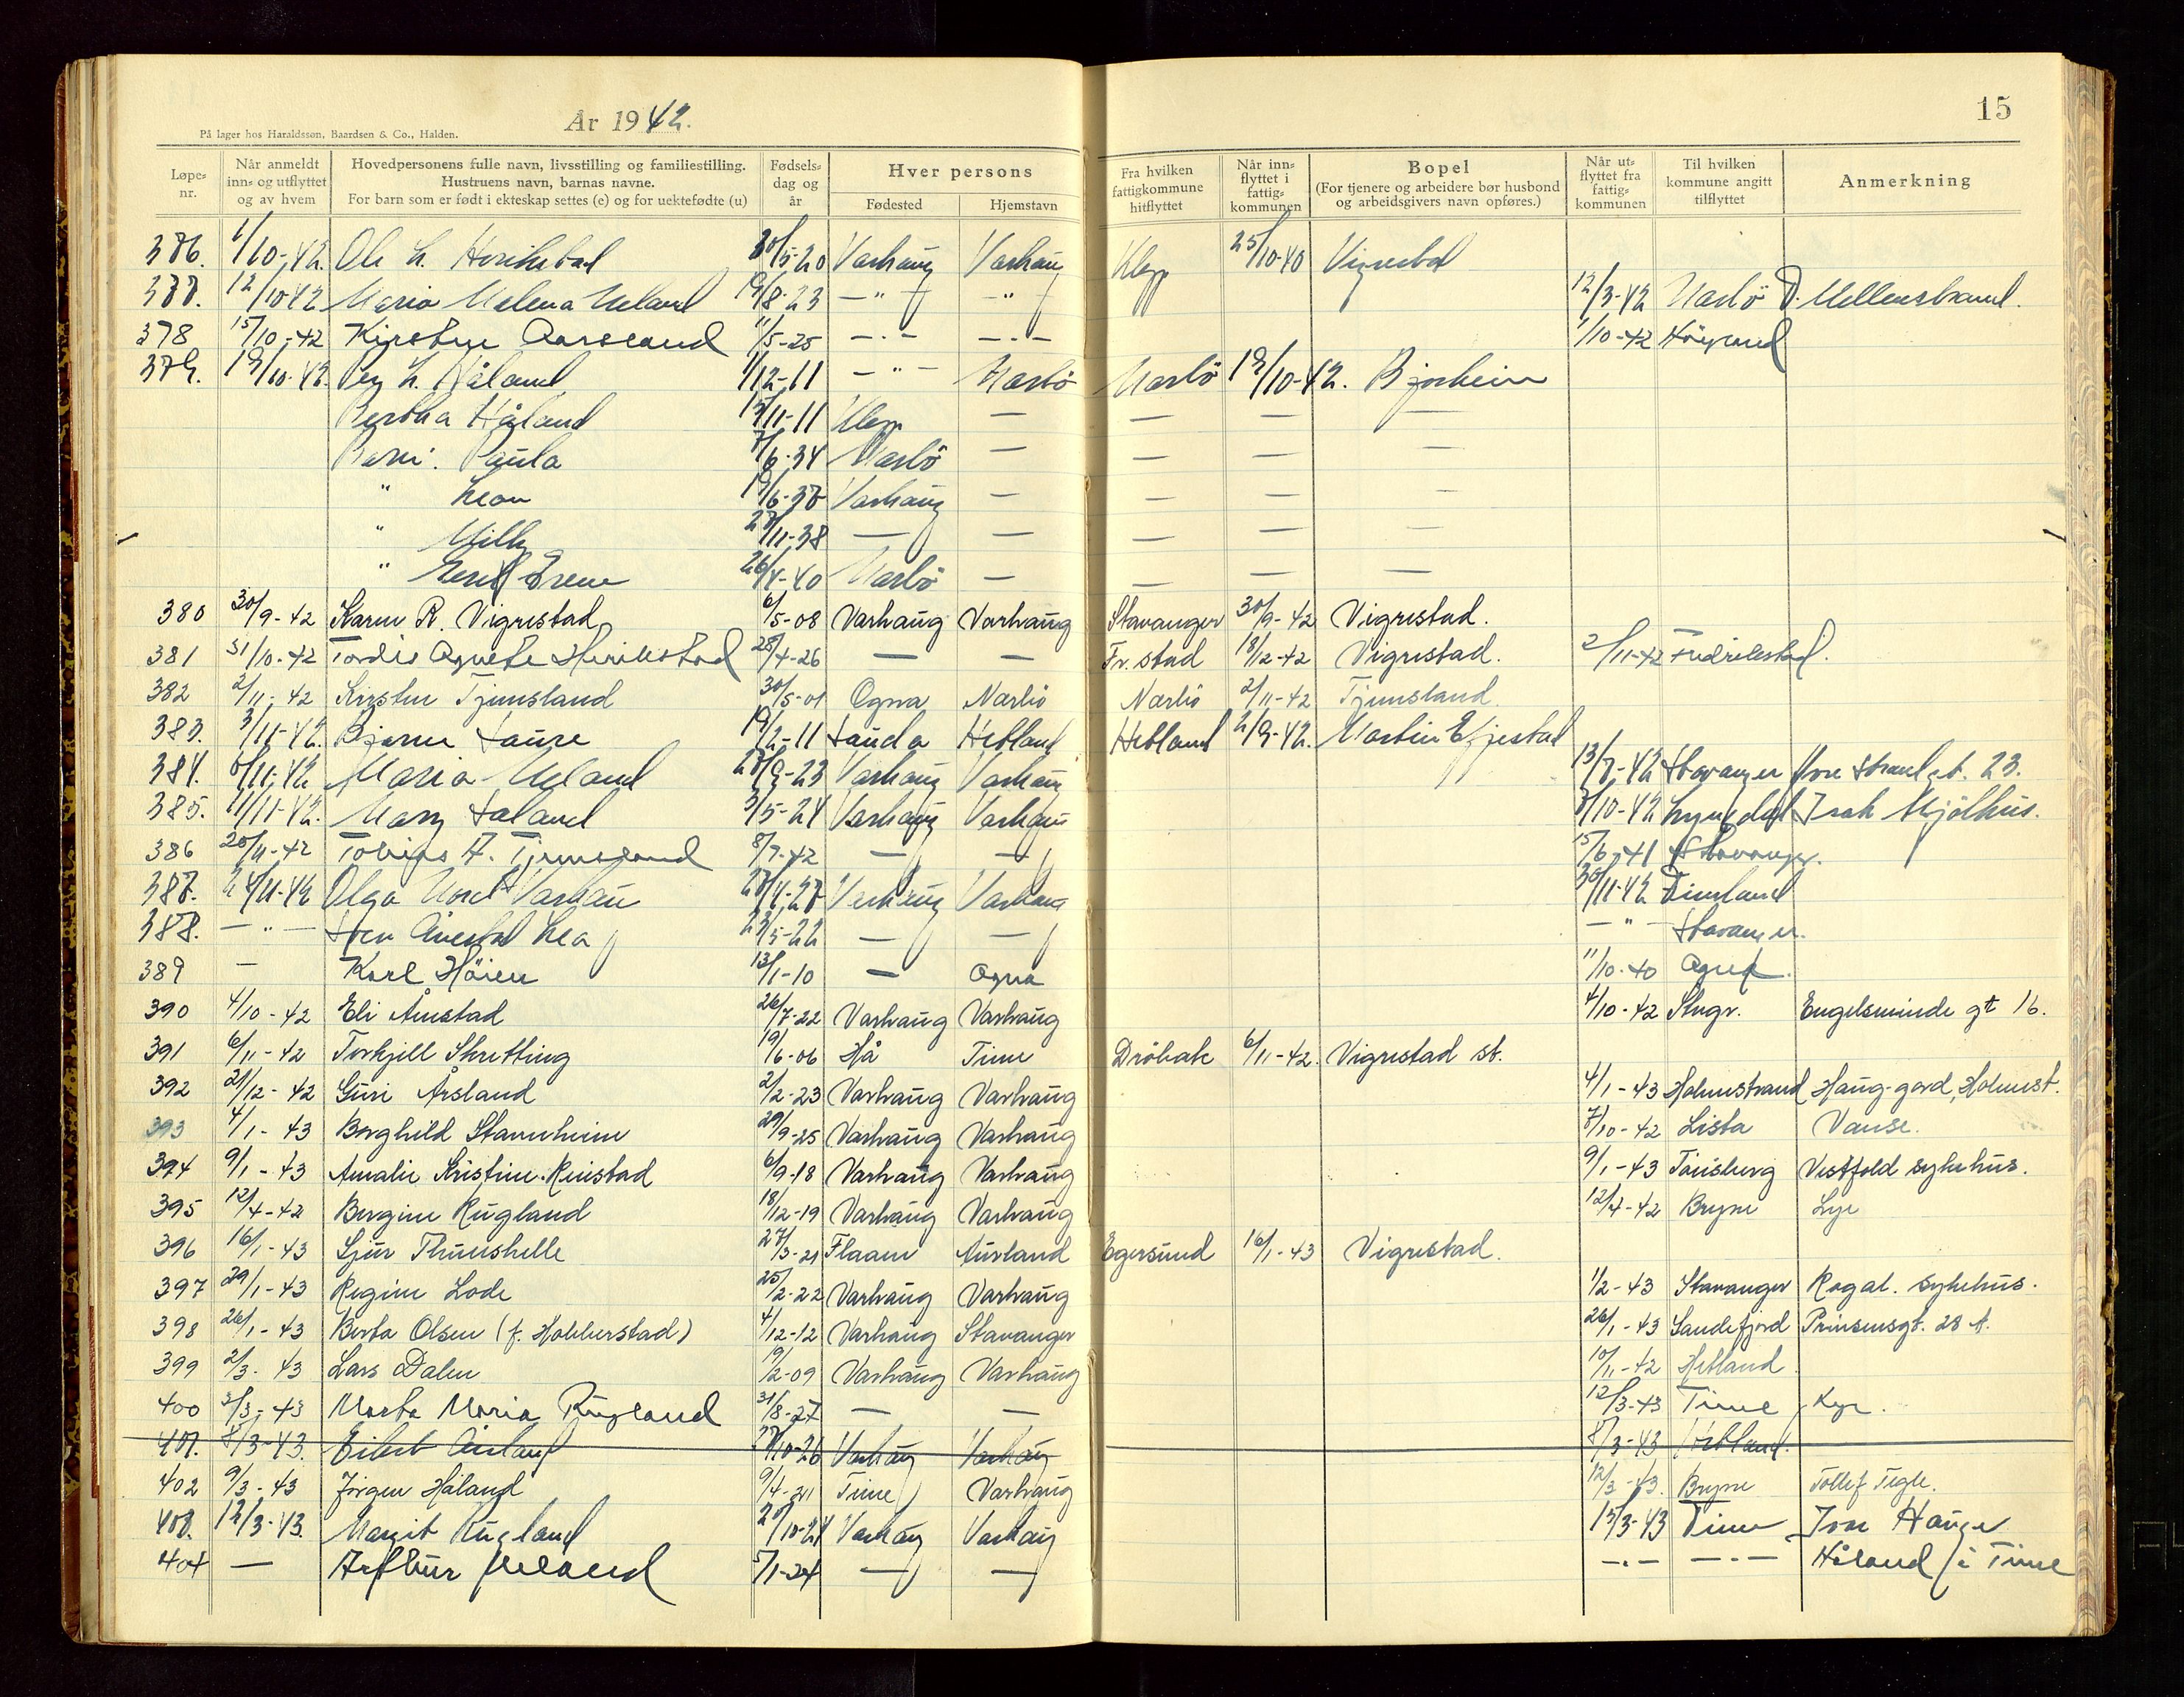 År 1942.
15
På lager hos Haraldsson, Baardsen & Co., Halden.
Løpe-nr. | Når anmeldt inn- og utflyttet og av hvem | Hovedpersonens fulle navn, livsstilling og familiestilling. Hustruens navn, barnas navne. For barn som er født i ekteskap settes (e) og for uektefødte (u) | Fødsels-dag og år | Hver persons Fødested | Hjemstavn | Fra hvilken fattigkommune hitflyttet | Når inn-flyttet i fattig-kommunen | Bopel (For tjenere og arbeidere bør husbond og arbeidsgivers navn opføres.) | Når ut-flyttet fra fattig-kommunen | Til hvilken kommune angitt tilflyttet | Anmerkning
376. 1/10-42. Ole L. Herikstad 30/5-20 Varhaug Varhaug Klepp 25/10-40 Vigrestad
377. 12/10-42 Maria Malena Ueland 19/8-23 -"- -"- 12/3-42 Nærbö D. Mellemstrand.
378 15/10-42 Kirsten Aarsland 11/5-25 -.- -.- 1/10-42
379. 19/10-42. L. Håland 1/12-11 -"- Nærbö Nærbö 19/10-42. Bjorheim
Bertha Håland 15/11-11 Klepp — — — —
Barn: Paula 7/6-34 Nærbö — — — —
" Leon 19/6-37 Varhaug — — — —
" Milly 27/11-38 — — — — —
" Irene 26/4-40 Nærbö — — — —
380 30/9-42 Karen R. Vigrestad 6/5-08 Varhaug Varhaug Stavanger 30/9-42 Vigrestad.
381 31/10-42 Tordis Agnete Herikstad 28/4-26 — — Fr.stad 18/12-42 Vigrestad. 2/11-42 Fredrikstad.
382 2/11-42 Kirsten Tjemsland 30/5-01 Ogna Nærbö Nærbö 2/11-42 Tjemsland
383. 3/11-42. Bjarne 19/2-11 Sauda Hetland Hetland 2/9-42. Martin
384. 6/11-42 Maria Ueland 27/9-23 Varhaug Varhaug 13/7-42 Stavanger 23.
385. 11/11-42. Mary 3/5-24 Varhaug Varhaug 8/10-42 Lyngdal Isak Mjölhus.
386 20/11-42 Tobias A. Tjemsland 8/7-42 — — 15/6-41 Stavanger.
387. 24/11-42 Olga Varhaug 27/4-27 Varhaug Varhaug 30/11-42
388. -"- Lea 23/5-22 — — -"- Stavanger.
389 — Karl Höien 13/1-10 — Ogna 11/10-40 Ogna.
390 4/10-42 Eli Årrestad 26/7-22 Varhaug Varhaug 4/10-42 Stvgr. Engelsminde gt 16.
391 6/11-42 Torkjell Skretting 19/6-06 Hå Time Dröbak 6/11-42. Vigrestad st.
392 21/12-42 Guri Årsland 2/2-23 Varhaug Varhaug 4/1-43 Holmstrand Haug-gard, Holmst.
393 4/1-43 Borghild Stavnheim 29/9-25 Varhaug Varhaug 7/10-42 Lista Vanse.
394 9/1-43 Amalie Kristine Reistad 6/9-18 Varhaug Varhaug 9/1-43 Tönsberg Vestfold sykehus.
395 12/4-42 Bergine Rugland 18/12-19 Varhaug Varhaug 12/4-42 Bryne Lye
396 16/1-43 Sjur Thunshelle 27/3-21 Flaam Aurland Egersund 16/1-43 Vigrestad.
397 29/1-43 Regine Lode 25/2-22 Varhaug Varhaug 1/2-43 Stavanger Rogal. sykehus.
398 26/1-43 Berta Olsen (f. Hobberstad) 4/12-12 Varhaug Stavanger 26/1-43 Sandefjord Prinsensgt. 28 A.
399 2/3-43 Lars Dalen 19/2-09 Varhaug Varhaug 10/11-42 Hetland.
400 3/3-43 Marta Maria Rugland 31/8-27 — — 12/3-43 Time Lye.
401. 8/3-43. 27/10-26 Varhaug Varhaug 8/3-43 Hetland.
402 9/3-43 Jörgen Håland 9/4-21 Time Varhaug 12/3-43. Bryne Tollef Tegle.
403. 12/3-43. Margit Rugland 20/10-24 Varhaug Varhaug 15/3-43 Time Ivar Hauge
404 — Arthur Ueland 5/1-24 — — -.- -.- Håland i Time